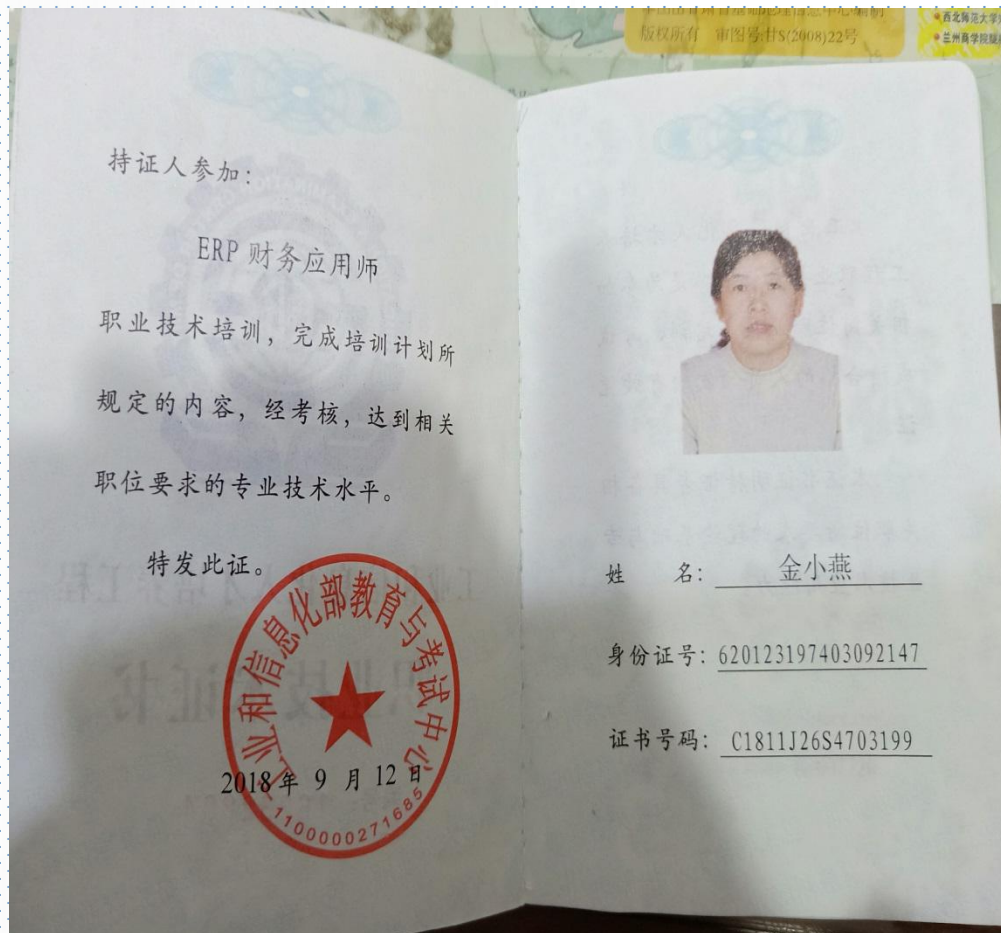 版权所有 审图号:甘S(2008)22号
持证人参加:
ERP 财务应用师
职业技术培训,完成培训计划所
规定的内容,经考核,达到相关
职位要求的专业技术水平。
特发此证。
工业和信息化部教育与考试中心
2018年 9 月 12 日
1100000271685
姓 名: 金小燕
身份证号: 620123197403092147
证书号码: C1811J26S4703199